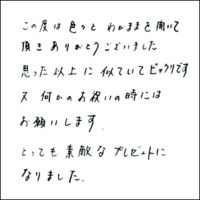 この度は色々とわがままを聞いて
頂きありがとうございました
思った以上に似ていてビックリです
又何かのお祝いの時には
お願いします.
とっても素敵なプレゼントに
なりました.